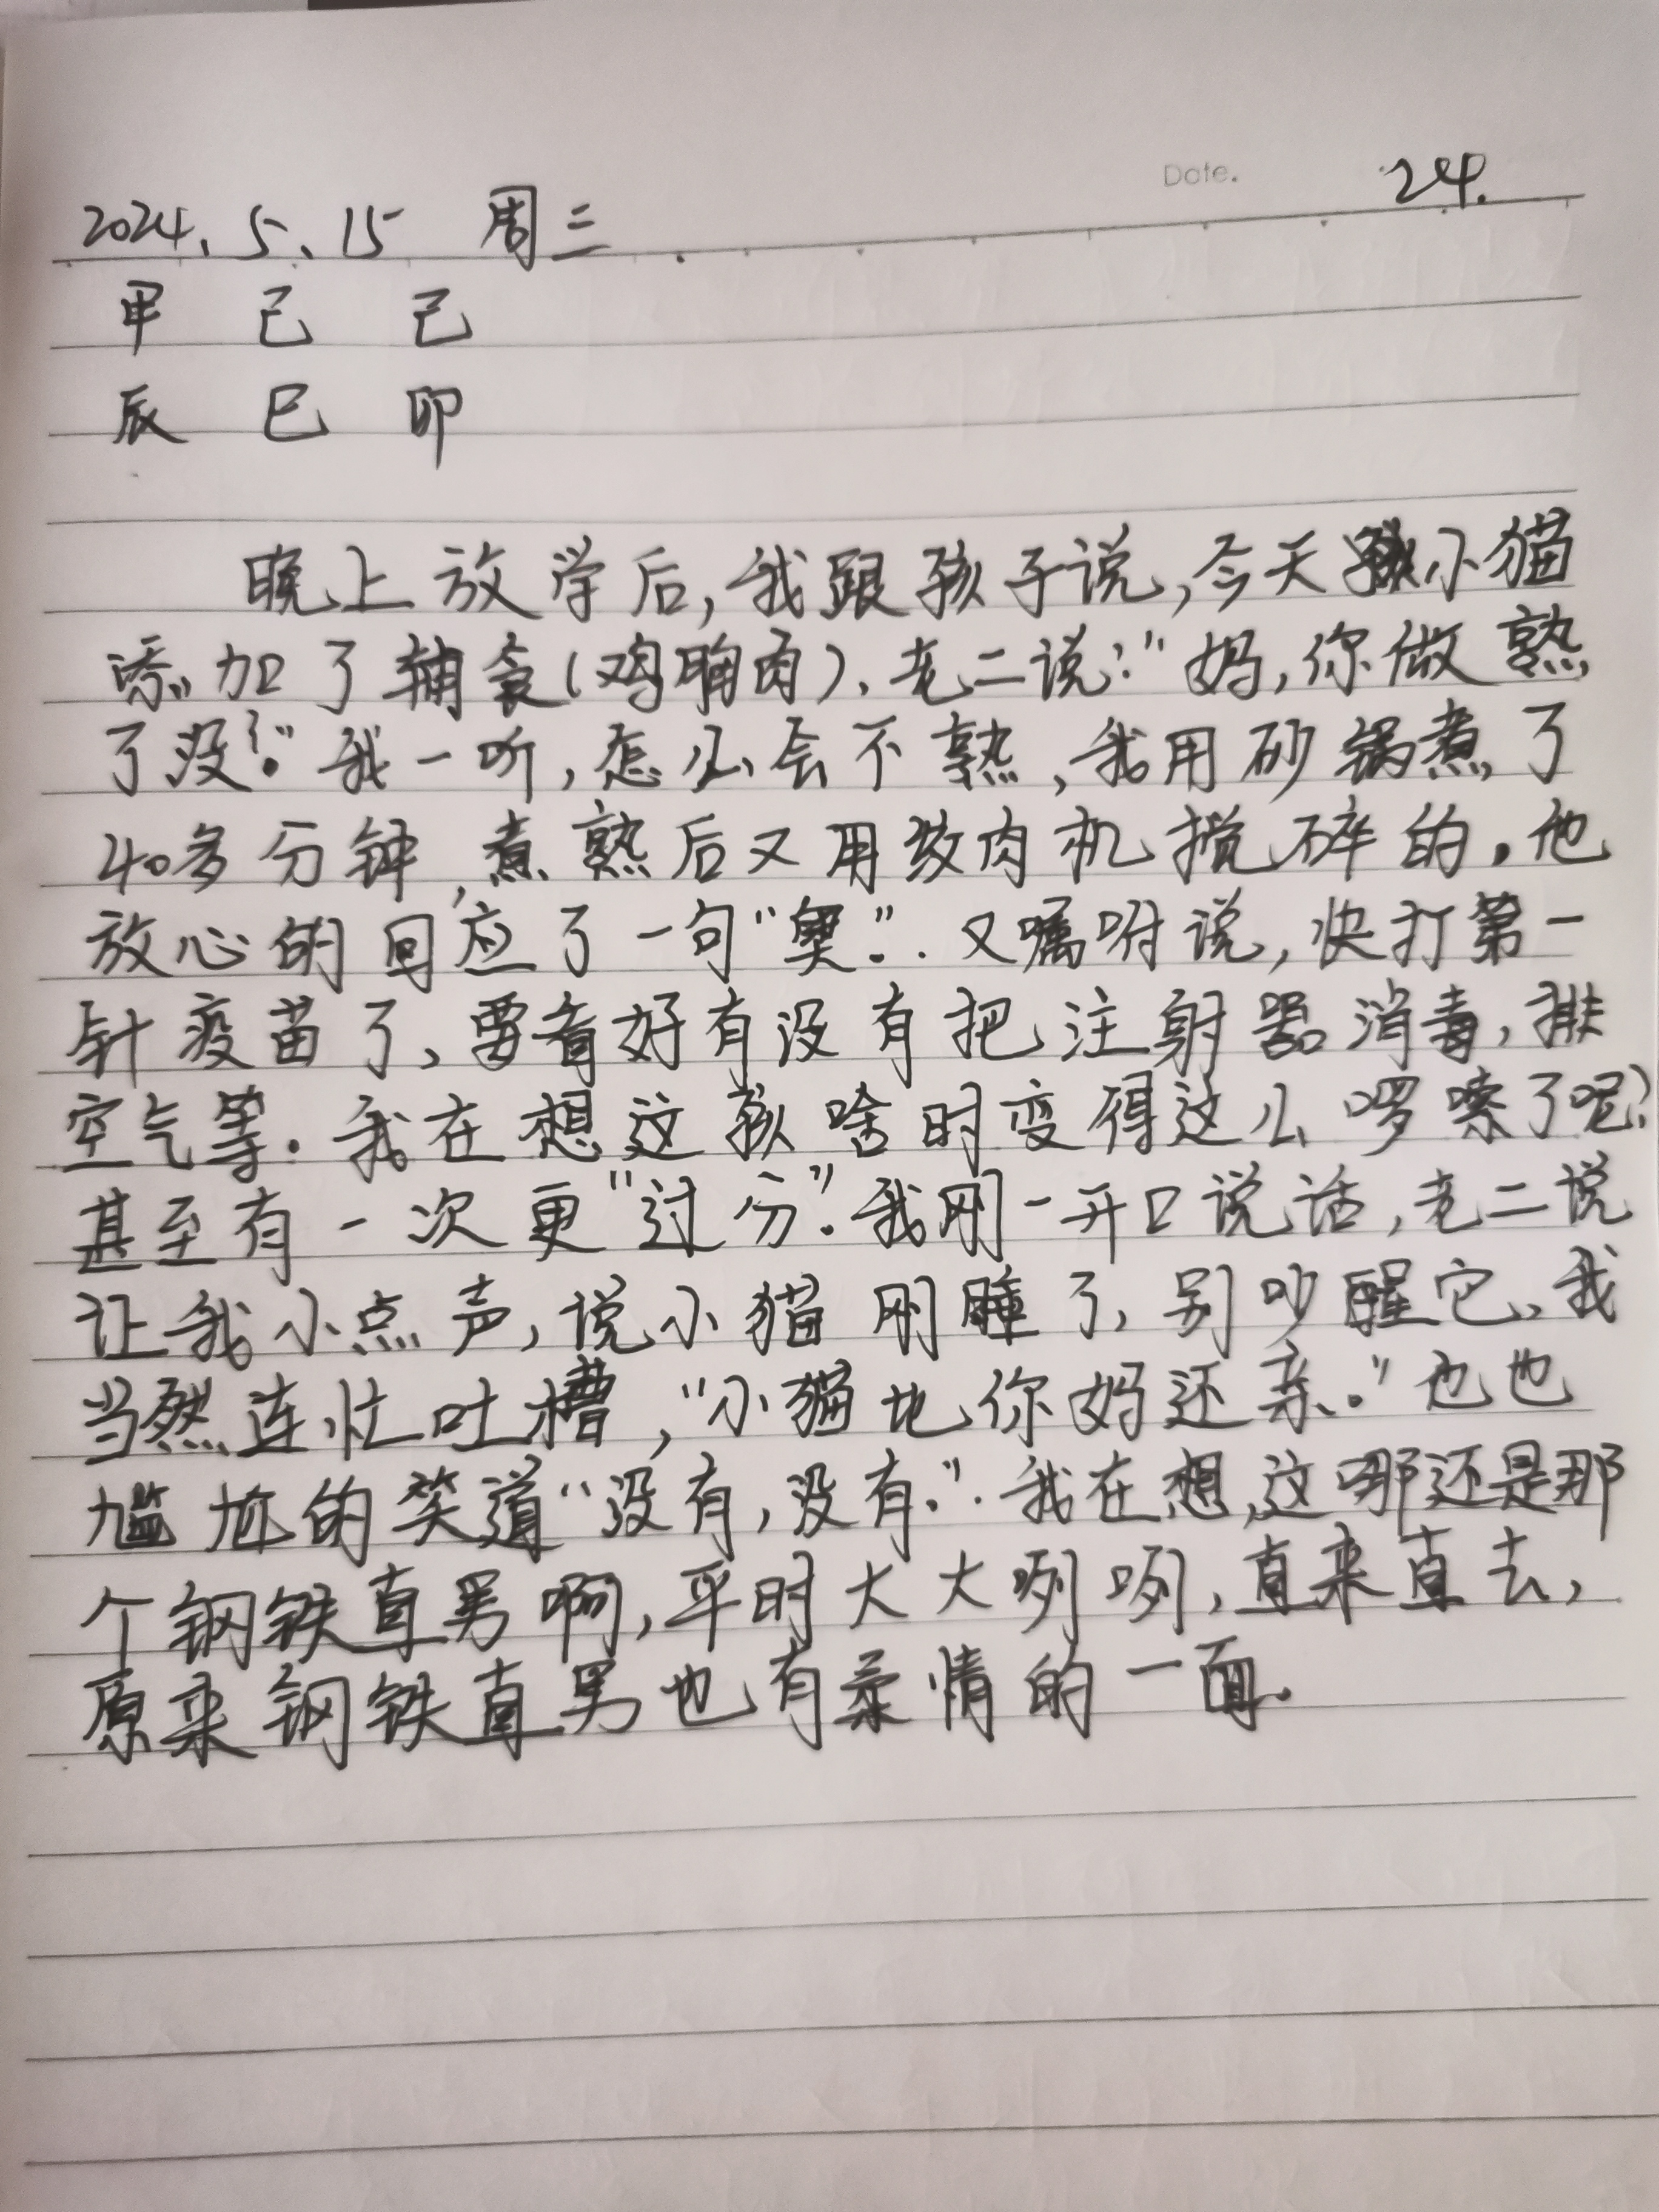 Date. 24.
2024.5.15 周三
甲 己 己
辰 巳 卯
晚上放学后,我跟孩子说,今天小猫
添加了辅食(鸡胸肉).老二说:"妈,你做熟
了没?"我一听,怎么会不熟,我用砂锅煮了
40多分钟,煮熟后又用绞肉机搅碎的.他
放心的回应了一句"奥".又嘱咐说,快打第一
针疫苗了,要看好有没有把注射器消毒,排
空气等.我在想这孩啥时变得这么啰嗦了呢?
甚至有一次更"过分".我刚一开口说话,老二说
让我小点声,说小猫刚睡了,别吵醒它,我
当然连忙吐槽,"小猫比你妈还亲."也也
尴尬的笑道"没有,没有.".我在想,这哪还是那
个钢铁直男啊,平时大大咧咧,直来直去,
原来钢铁直男也有柔情的一面.